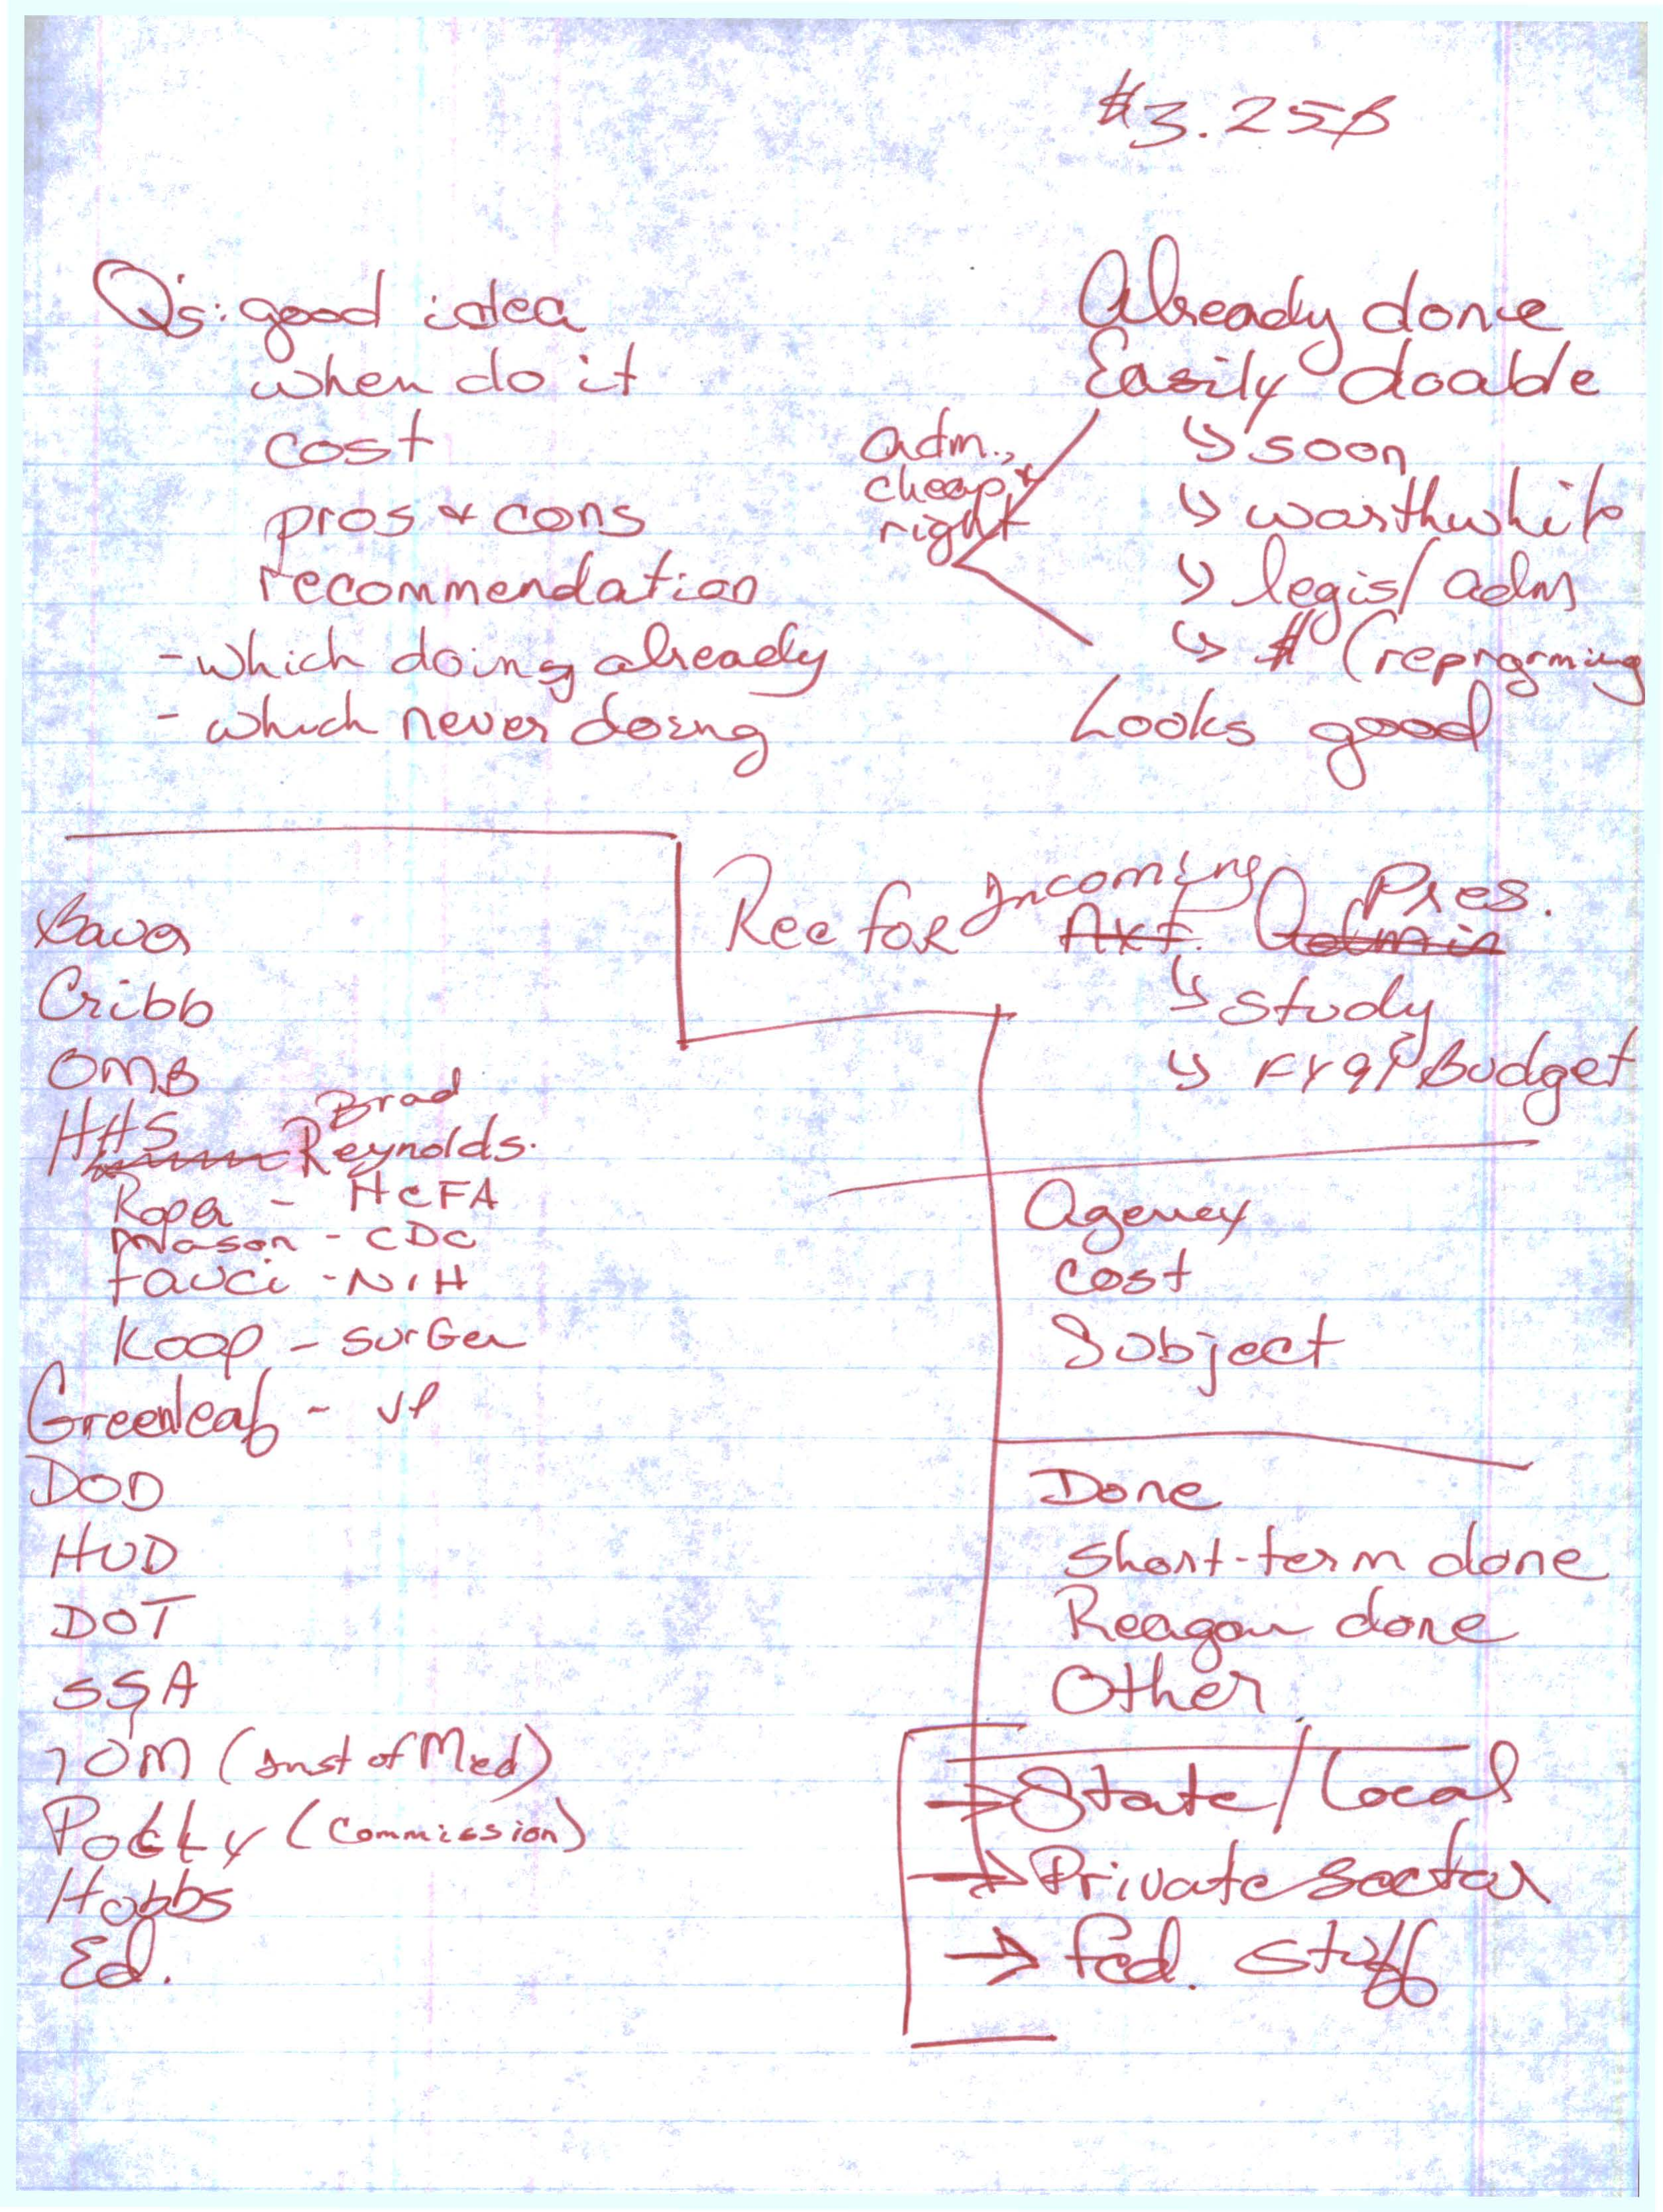 $3.25B
Q's: good idea
when do it
cost
pros & cons
recommendation
- which doing already
- which never doing
Already done
Easily doable
↳ soon
↳ worthwhile
↳ legis/adm
↳ $ (reprgrming
adm.,
cheap, &
right
Looks good
Rec for Incoming Pres.
Nxt. Admin
↳ study
↳ FY9 Budget
Bauer
Cribb
OMB
HHS
Brad
Reynolds.
Roper - HCFA
Mason - CDC
Fauci - NIH
Koop - Sur Gen
Greenleaf - VP
DOD
HUD
DOT
SSA
IOM (Inst of Med)
(Commission)
Hobbs
Ed.
Agency
Cost
Subject
Done
Short-term done
Reagan done
Other
→ State/Local
→ Private sector
→ Fed. Stuff